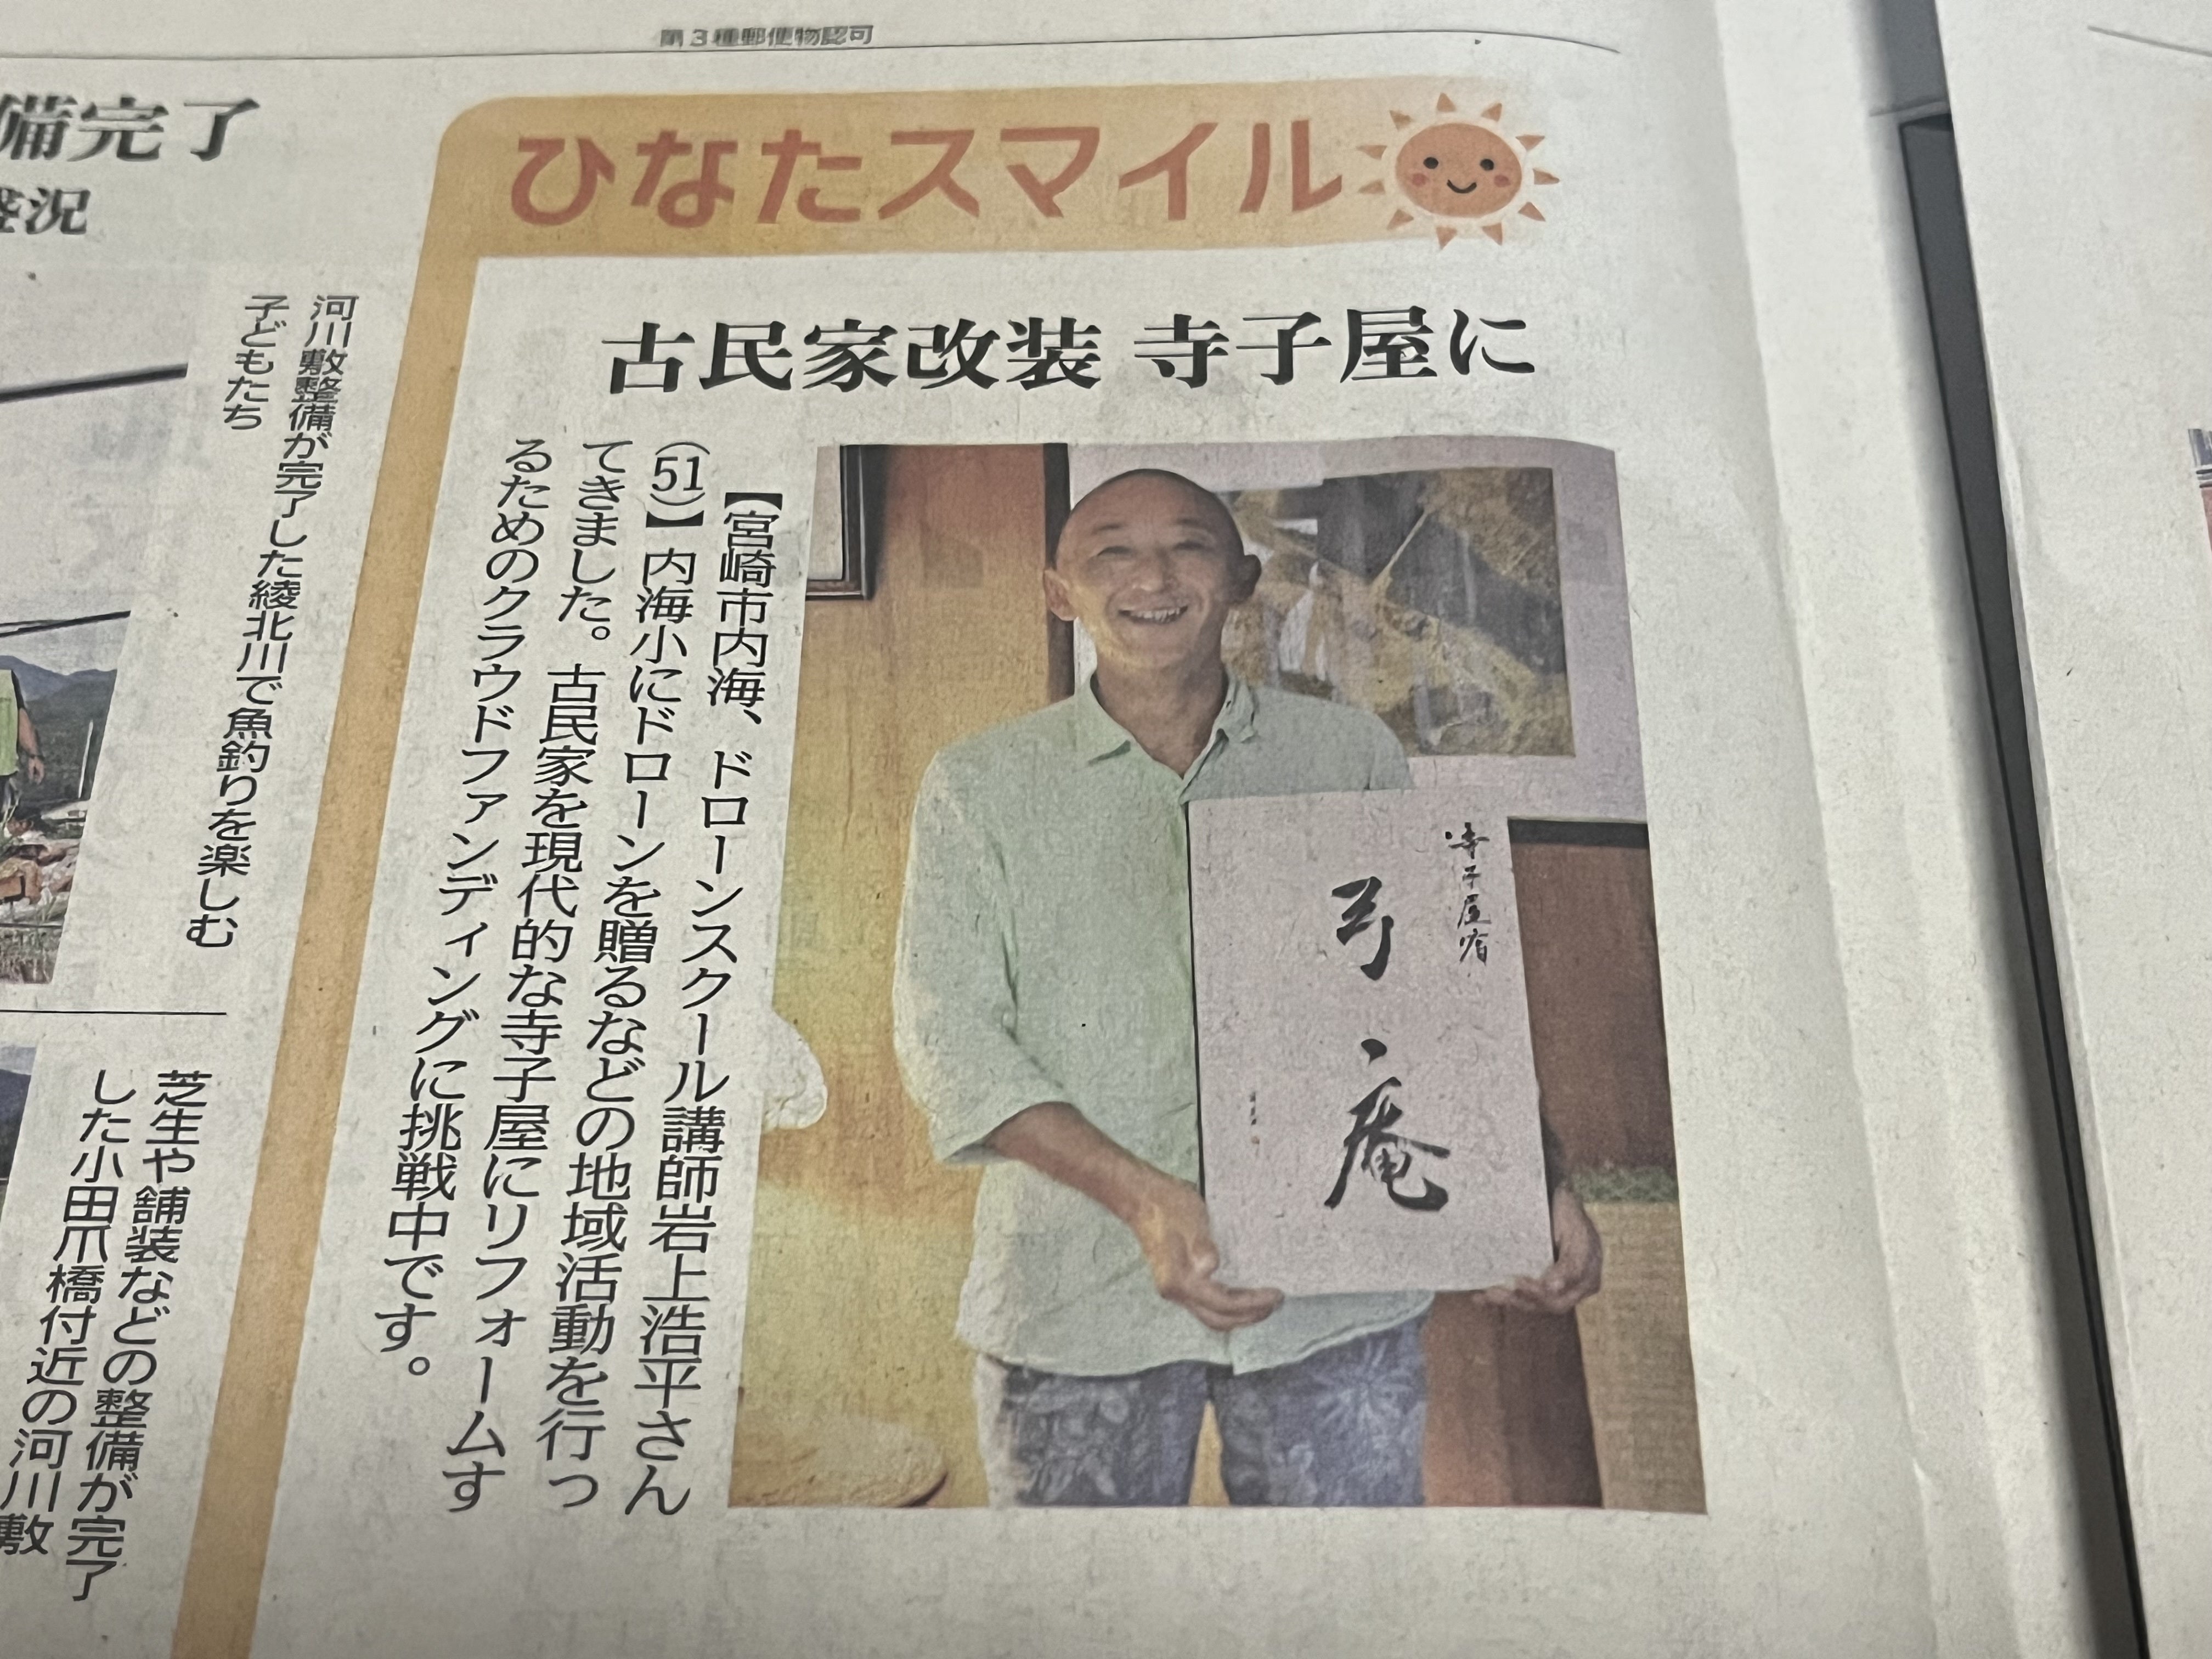 第3種郵便物認可
ひなたスマイル
古民家改装 寺子屋に
【宮崎市内海、ドローンスクール講師岩上浩平さん
(51)】内海小にドローンを贈るなどの地域活動を行っ
てきました。古民家を現代的な寺子屋にリフォームす
るためのクラウドファンディングに挑戦中です。
寺子屋宿
弓庵
備完了
盛況
河川敷整備が完了した綾北川で魚釣りを楽しむ
子どもたち
芝生や舗装などの整備が完了
した小田爪橋付近の河川敷